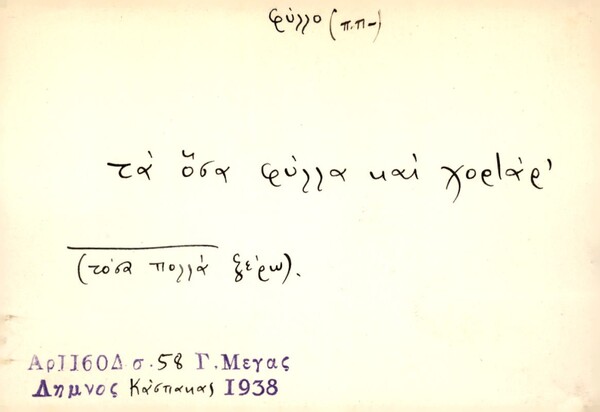 φύλλο (π.π-)
τὰ ὅσα φύλλα καὶ χορτάρ'
(τόσα πολλὰ ξέρω).
Αρ1160Δ σ. 58 Γ. Μεγας
Λημνος Κάσπακας 1938